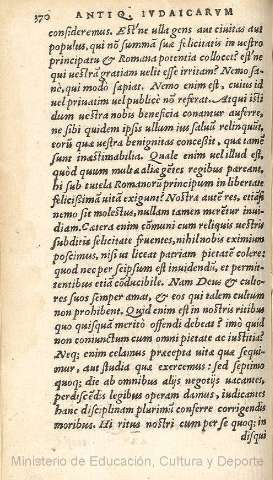 370 ANTIQ. IVDAICARVM
consideremus. Est'ne ulla gens aut ciuitas aut
populus, qui nō summā suæ felicitatis in uestro
principatu & Romana potentia collocet? est'ne
qui uestrā gratiam uelit esse irritam? Nemo sa-
nè, qui modò sapiat. Nemo enim est, cuius id
uel priuatim uel publicè nō referat. Atqui isti
dum uestra nobis beneficia conantur auferre,
ne sibi quidem ipsis ullum ius saluū relinquūt,
eorū quæ uestra benignitas concessit, quæ tamē
sunt inæstimabilia. Quale enim uel illud est,
quòd quum multæ aliæ gētes regibus pareant,
hi sub tutela Romanorū principum in libertate
felicissimā uitā exigunt? Nostra autē res, etiāsi
nemo sit molestus, nullam tamen merētur inui-
diam. Cætera enim cōmuni cum reliquis uestris
subditis felicitate fruentes, nihil nobis eximium
poscimus, nisi ut liceat patriam pietatē colere:
quod nec per seipsum est inuidendū, et permit-
tentibus etiā cōducibile. Nam Deus & culto-
res suos semper amat, & eos qui talem cultum
non prohibent. Quid enim est in nostris ritibus
quo quisquā meritò offendi debeat? imò quid
non coniunctum cum omni pietate ac iustitia?
Neq; enim celamus præcepta uitæ quæ sequi-
mur, aut studia quæ exercemus: sed septimo
quoq; die ab omnibus alijs negotijs uacantes,
perdiscēdis legibus operam damus, iudicantes
hanc disciplinam plurimū conferre corrigendis
moribus. Hi ritus nostri cum per se quoq; in
disqui
Ministerio de Educación, Cultura y Deporte